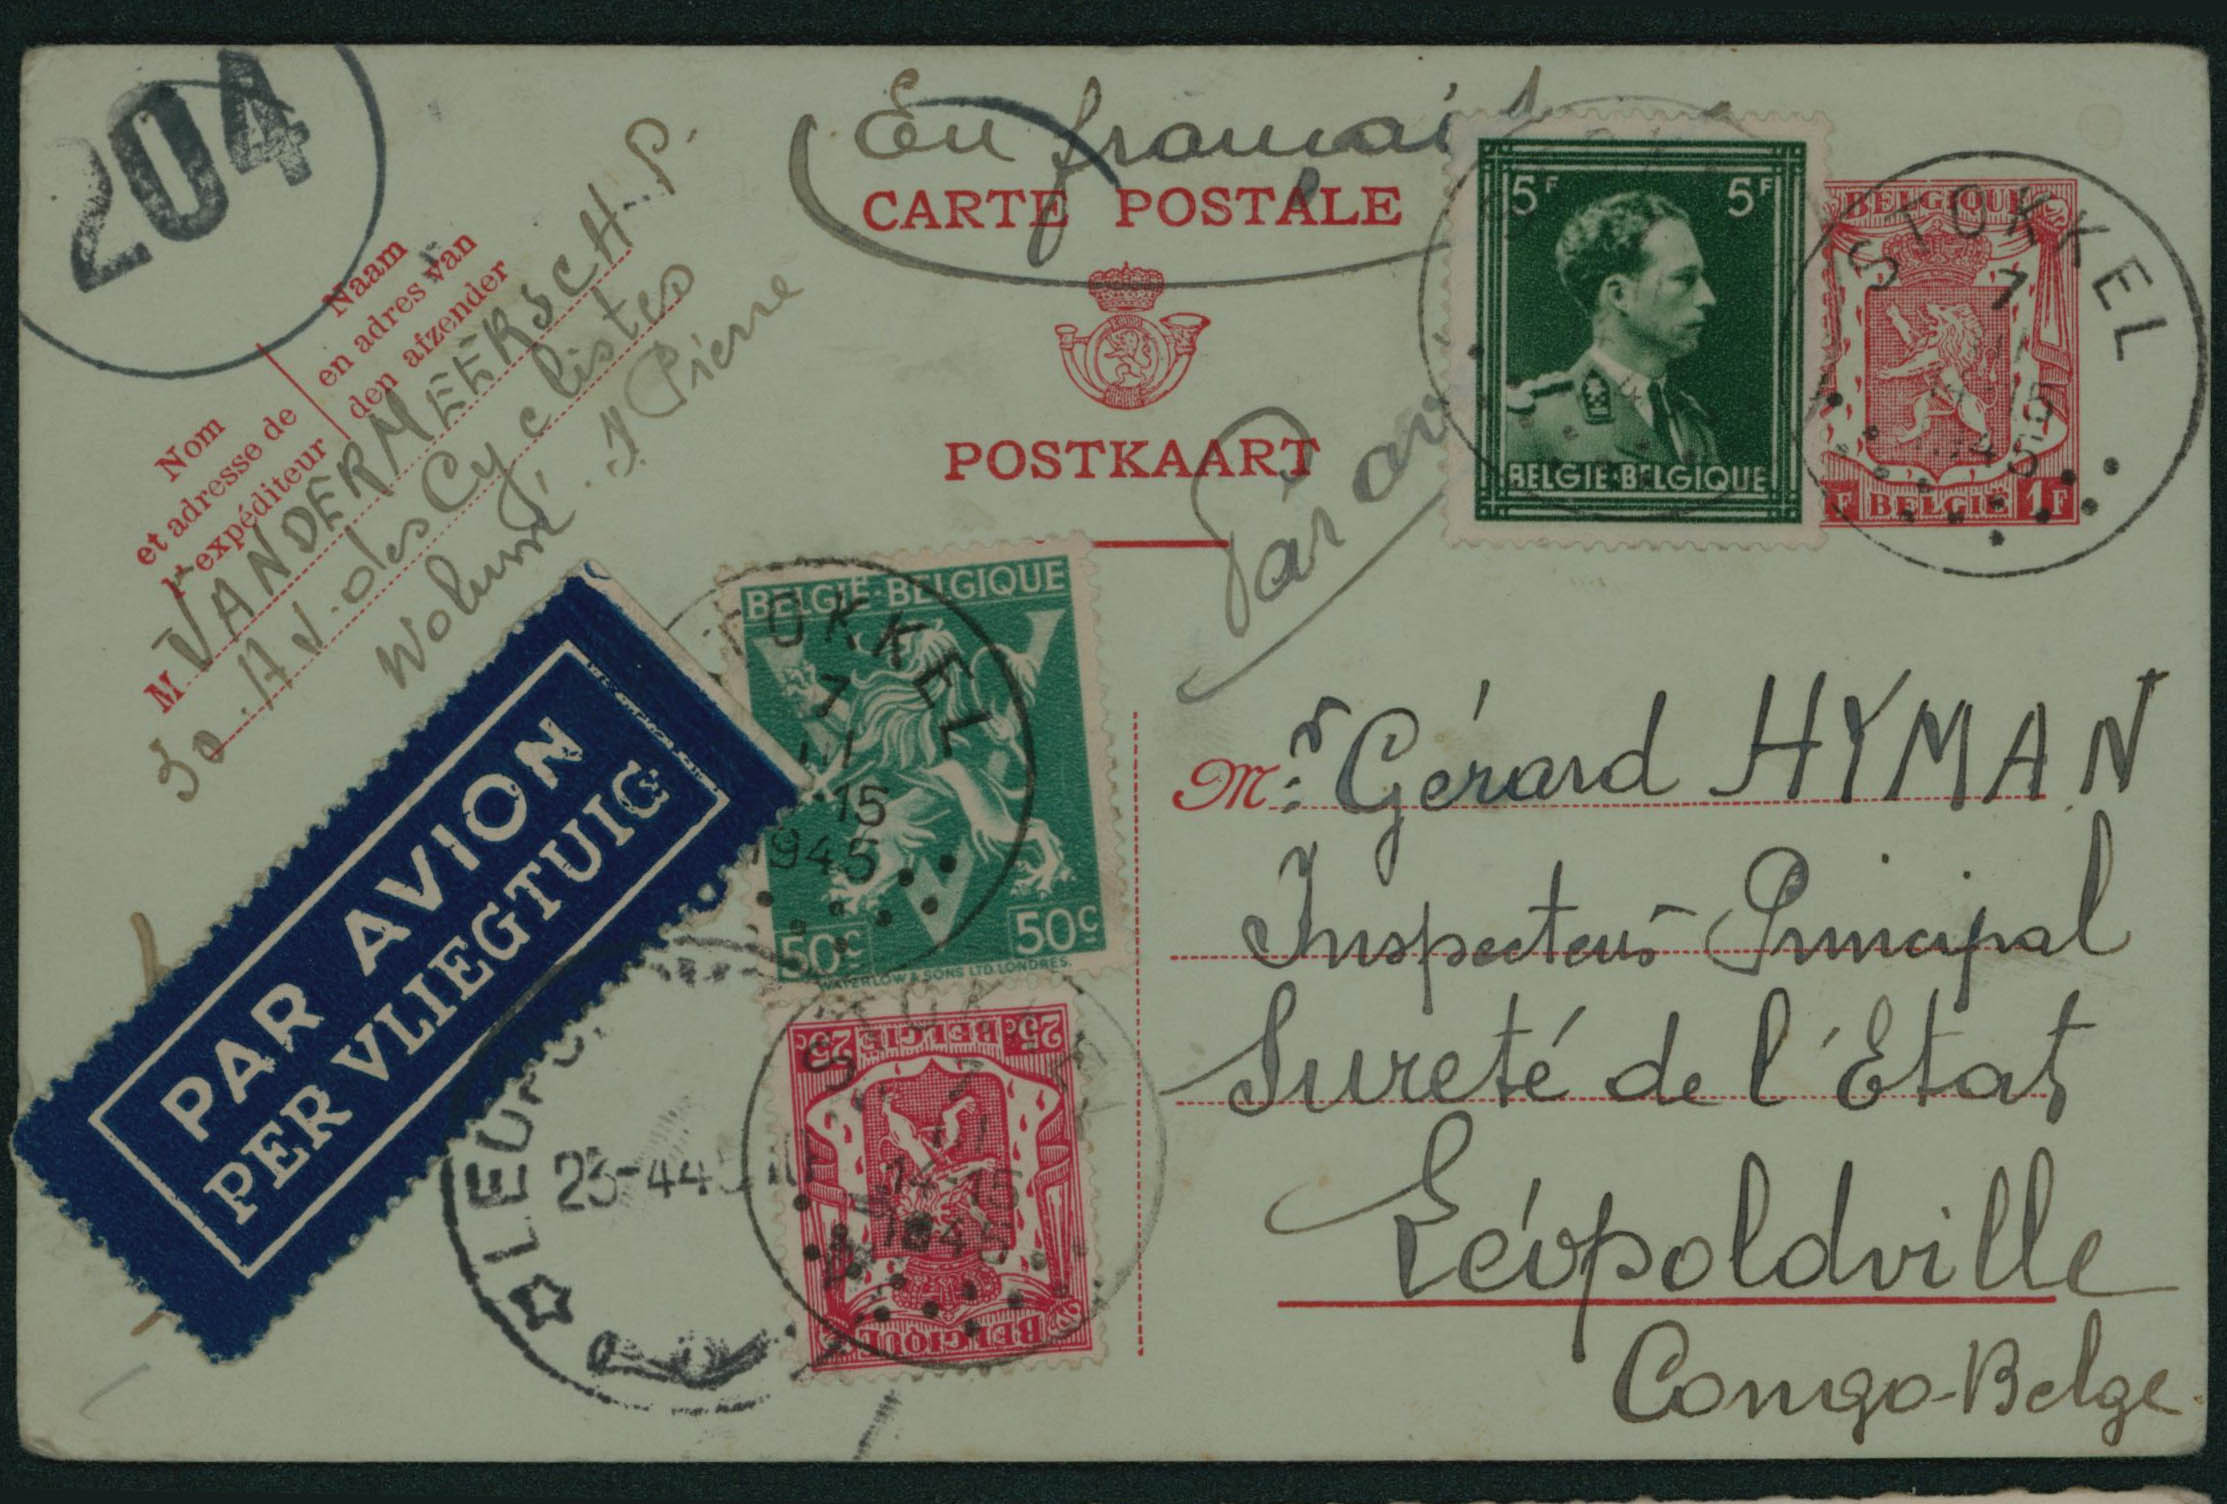 204
En français
CARTE POSTALE
POSTKAART
Naam
en adres van
den afzender
Nom
et adresse de
l'expéditeur
M VANDERMEERSCH P.
30 Av. des Cyclistes
Woluwé S' Pierre
5F 5F
BELGIE·BELGIQUE
BELGIQUE
BELGIE 1F
STOKKEL
7
15
1945
Par av
PAR AVION
PER VLIEGTUIG
BELGIË·BELGIQUE
50c 50c
WATERLOW & SONS LTD. LONDRES.
TOKKEL
7
III
-15
1945
25c BELGIE 25c
BELGIQUE
7
III
14-15
1945
LEOPO
Mr Gérard HYMAN
Inspecteur Principal
Sureté de l'Etat
Léopoldville
Congo-Belge